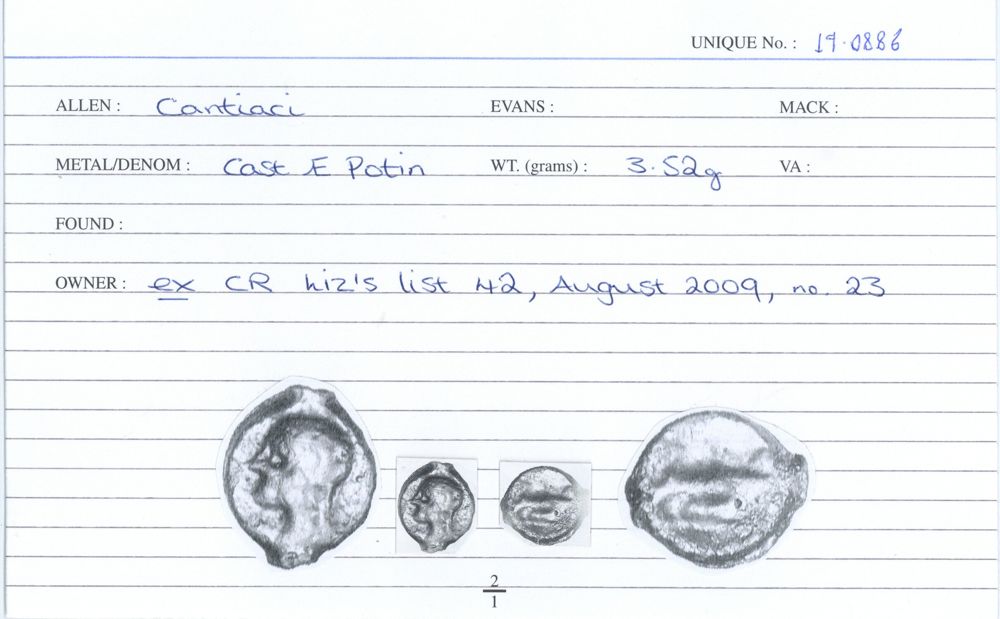 UNIQUE No. : 19·0886
ALLEN : Cantiaci EVANS : MACK :
METAL/DENOM : Cast Æ Potin WT. (grams) : 3·52g VA :
FOUND :
OWNER : ex CR Liz's list 42, August 2009, no. 23
2
1